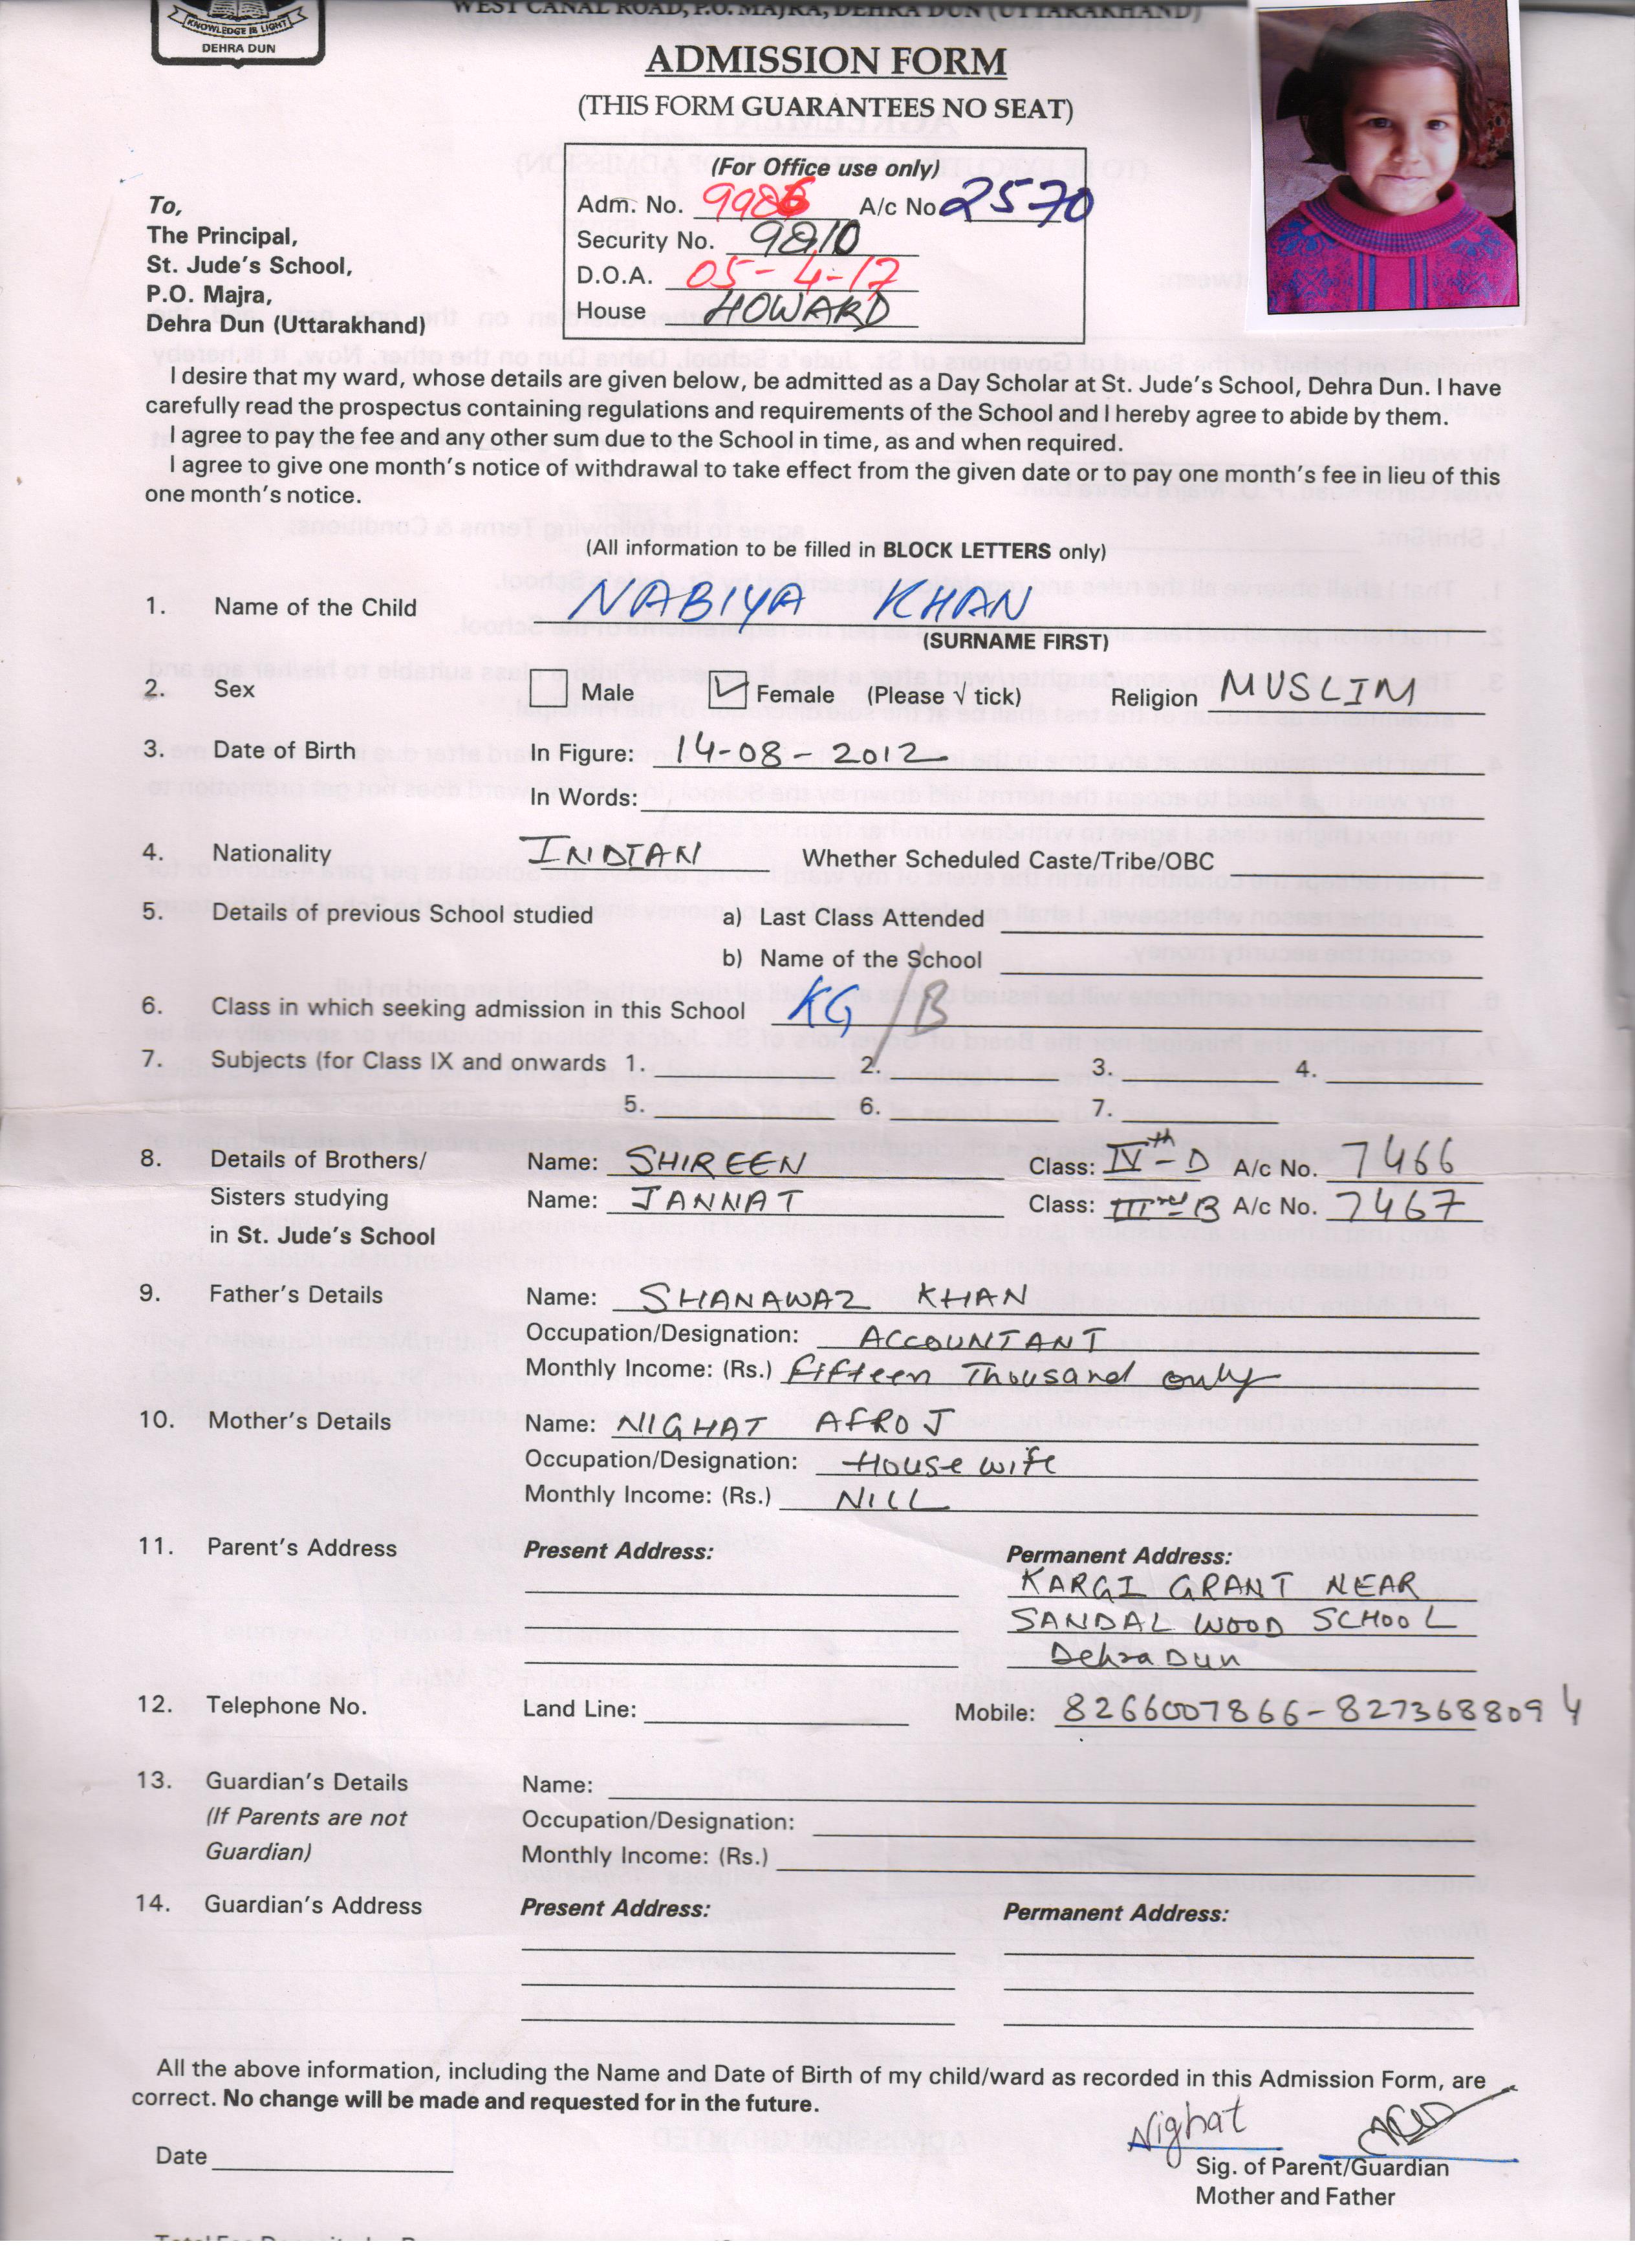 WEST CANAL ROAD, P.O. MAJRA, DEHRA DUN (UTTARAKHAND)
KNOWLEDGE IS LIGHT
DEHRA DUN
ADMISSION FORM
(THIS FORM GUARANTEES NO SEAT)
(For Office use only)
Adm. No. A/c No 2570
Security No.
D.O.A. 05-4-17
House HOWARD
To,
The Principal,
St. Jude's School,
P.O. Majra,
Dehra Dun (Uttarakhand)
I desire that my ward, whose details are given below, be admitted as a Day Scholar at St. Jude's School, Dehra Dun. I have
carefully read the prospectus containing regulations and requirements of the School and I hereby agree to abide by them.
I agree to pay the fee and any other sum due to the School in time, as and when required.
I agree to give one month's notice of withdrawal to take effect from the given date or to pay one month's fee in lieu of this
one month's notice.
(All information to be filled in BLOCK LETTERS only)
1. Name of the Child NABIYA KHAN
(SURNAME FIRST)
2. Sex Male Female (Please √ tick) Religion MUSLIM
3. Date of Birth In Figure: 14-08-2012
In Words:
4. Nationality INDIAN Whether Scheduled Caste/Tribe/OBC
5. Details of previous School studied a) Last Class Attended
b) Name of the School
6. Class in which seeking admission in this School KG/B
7. Subjects (for Class IX and onwards 1. 2. 3. 4.
5. 6. 7.
8. Details of Brothers/ Name: SHIREEN Class: IVth-D A/c No. 7466
Sisters studying Name: JANNAT Class: IIIrd-B A/c No. 7467
in St. Jude's School
9. Father's Details Name: SHANAWAZ KHAN
Occupation/Designation: ACCOUNTANT
Monthly Income: (Rs.) Fifteen Thousand only
10. Mother's Details Name: NIGHAT AFROJ
Occupation/Designation: House wife
Monthly Income: (Rs.) NILL
11. Parent's Address Present Address: Permanent Address:
KARGI GRANT NEAR
SANDAL WOOD SCHOOL
Dehra Dun
12. Telephone No. Land Line: Mobile: 8266007866-8273688094
13. Guardian's Details Name:
(If Parents are not Occupation/Designation:
Guardian) Monthly Income: (Rs.)
14. Guardian's Address Present Address: Permanent Address:
All the above information, including the Name and Date of Birth of my child/ward as recorded in this Admission Form, are
correct. No change will be made and requested for in the future.
Nighat
Date
Sig. of Parent/Guardian
Mother and Father